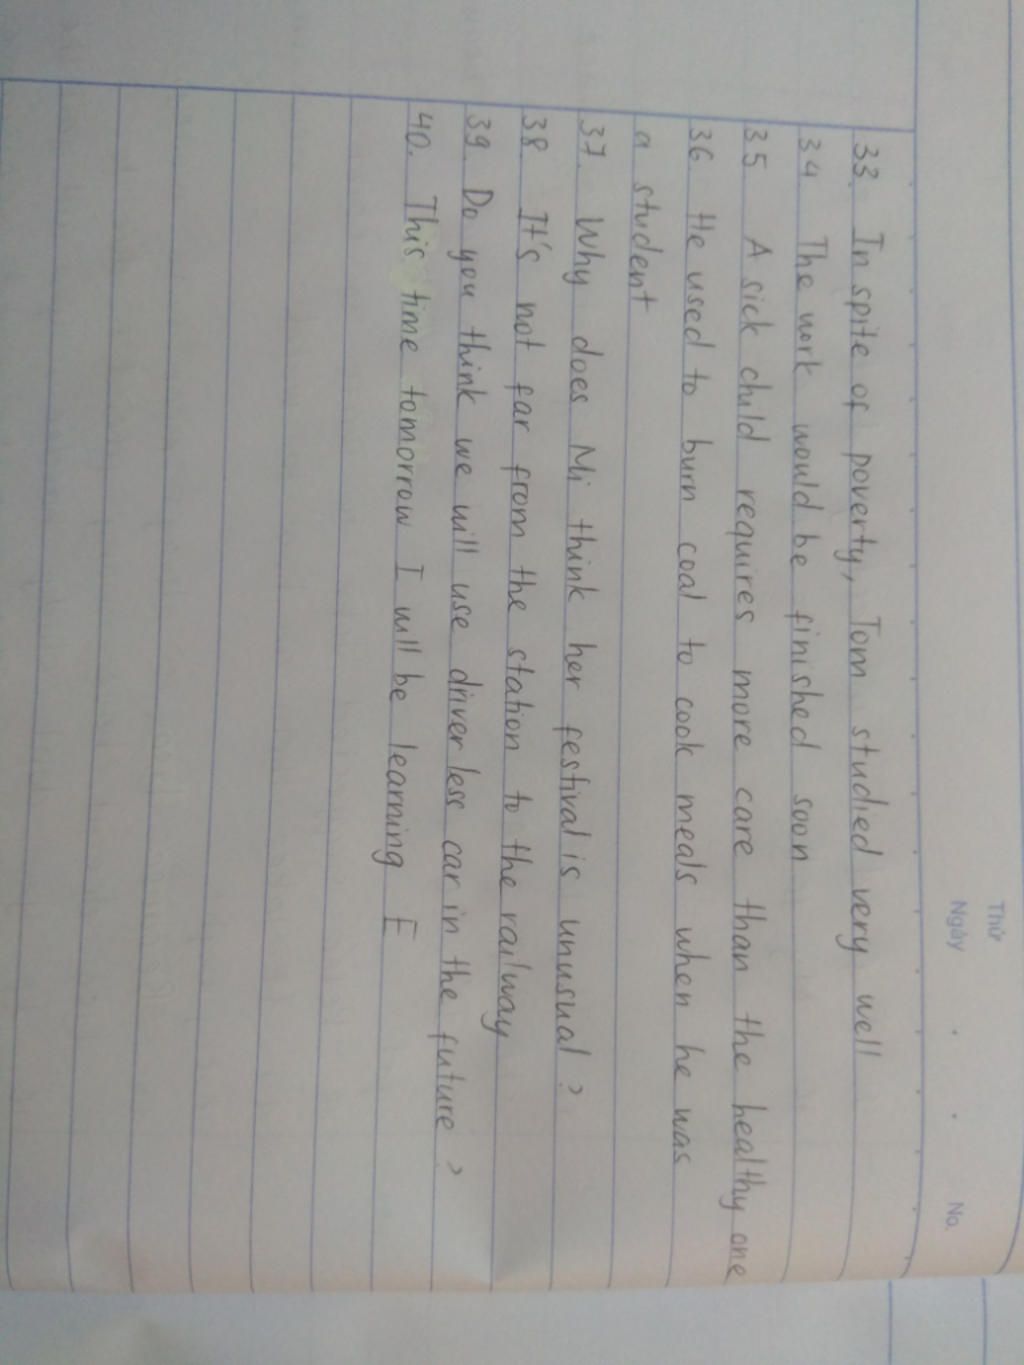 Thứ
Ngày . . No.
33. In spite of poverty, Tom studied very well
34 The work would be finished soon
35 A sick child requires more care than the healthy one
36 He used to burn coal to cook meals when he was
a student
37. Why does Mi think her festival is unusual?
38 It's not far from the station to the railway
39 Do you think we will use driver less car in the future?
40. This time tomorrow I will be learning E